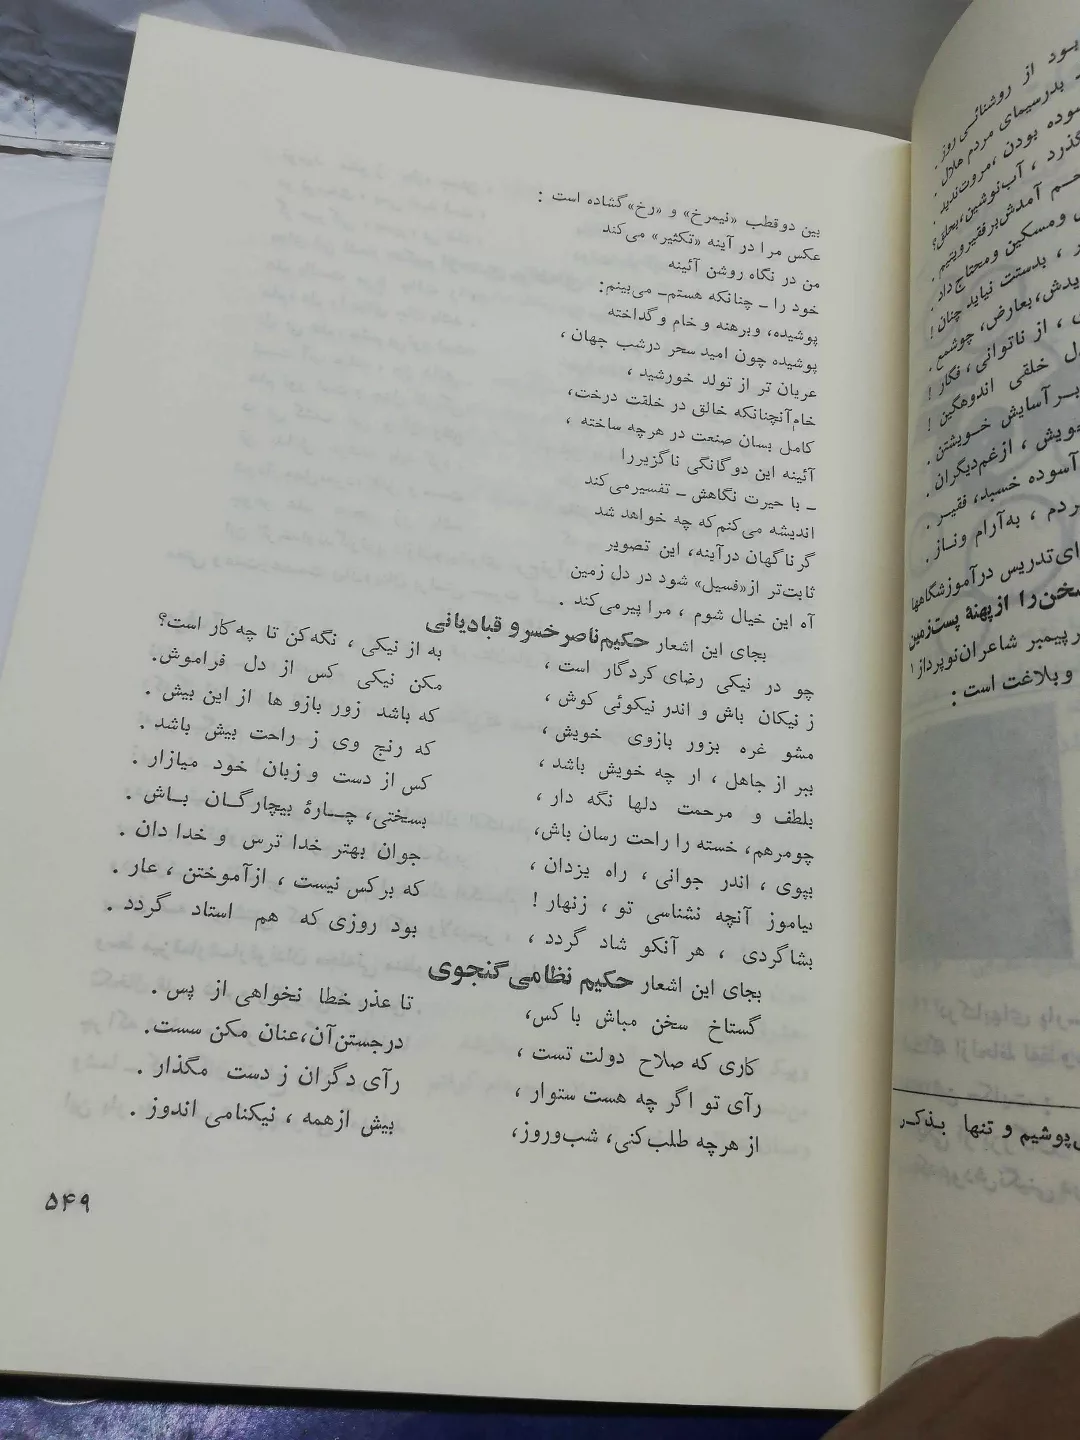 بین دوقطب «نیمرخ» و «رخ» گشاده است :
عکس مرا در آینه «تکثیر» می‌کند
من در نگاه روشن آئینه
خود را ـ چنانکه هستم‌ـ می‌بینم:
پوشیده، وبرهنه و خام و گداخته
پوشیده چون امید سحر درشب جهان ،
عریان تر از تولد خورشید ،
خام‌آنچنانکه خالق در خلقت درخت،
کامل بسان صنعت در هرچه ساخته ،
آئینه این دوگانگی ناگزیررا
ـ با حیرت نگاهش ـ تفسیرمی‌کند
اندیشه می‌کنم‌که چه خواهد شد
گر ناگهان درآینه، این تصویر
ثابت‌تر از«فسیل» شود در دل زمین
آه این خیال شوم ، مرا پیرمی‌کند .
بجای این اشعار حکیم‌ناصرخسرو قبادیانی
چو در نیکی رضای کردگار است ، به از نیکی ، نگه‌کن تا چه‌کار است؟
ز نیکان باش و اندر نیکوئی کوش ، مکن نیکی کس از دل فراموش.
مشو غره بزور بازوی خویش، که باشد زور بازو ها از این بیش .
ببر از جاهل ، ار چه خویش باشد ، که رنج وی ز راحت بیش باشد .
بلطف و مرحمت دلها نگه دار ، کس از دست و زبان خود میازار .
چومرهم، خسته را راحت رسان باش، بسختی، چــارهٔ بیچارگــان بــاش .
بپوی ، اندر جوانی ، راه یزدان ، جوان بهتر خدا ترس و خدا دان .
بیاموز آنچه نشناسی تو ، زنهار ! که برکس نیست ، ازآموختن ، عار .
بشاگردی ، هر آنکو شاد گردد ، بود روزی که هم استاد گردد .
بجای این اشعار حکیم نظامی‌گنجوی
گستاخ سخن مباش با کس، تا عذر خطا نخواهی از پس .
کاری که صلاح دولت تست ، درجستن‌آن،عنان مکن سست.
رآی تو اگر چه هست ستوار ، رآی دگران ز دست مگذار .
از هرچه طلب‌کنی، شب‌وروز، بیش ازهمه ، نیکنامی اندوز .
۵۴۹
بـود از روشنائـی روز .
بدرسیمای مردم هلال .
بودن ،مروت‌ندید .
آب‌نوشین،بحلق؟
آمدش‌برفقیرویتیم .
ومسکین ومحتاج‌داد .
، بدستت نیاید چنان!
بعارض، چوشمع .
، از ناتوانی، فگار !
خلقی اندوهگین !
بـرآسایش خـویشتن .
، ازغم‌دیگران .
آسوده خسبد، فقیـر .
، به‌آرام ونـاز .
تدریس درآموزشگاهها
را ازپهنهٔ پست‌زمین
پیمبر شاعران‌نوپرداز!
و بلاغت است :
و تنها بـذکـر